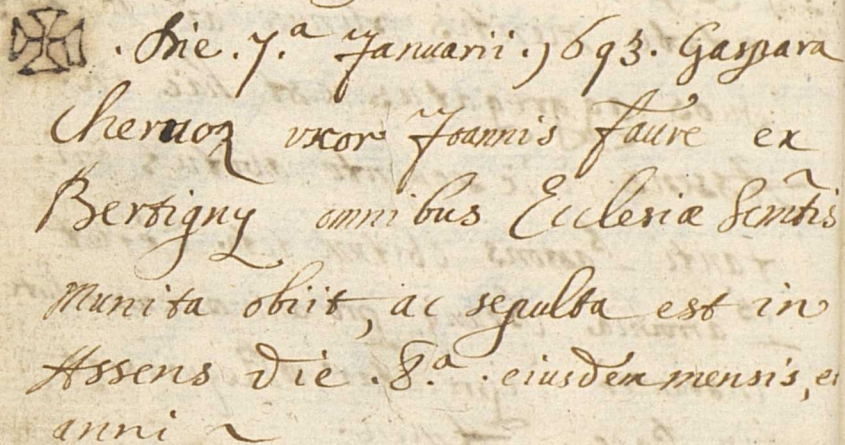 . Die . 7.ª Januarii . 1693 . Gaspara
Chervoz uxor Joannis Favre ex
Bertigny omnibus Ecclesiæ Scmẽtis
munita obiit, ac sepulta est in
Assens die . 8.ª . eiusdem mensis, et
anni ~